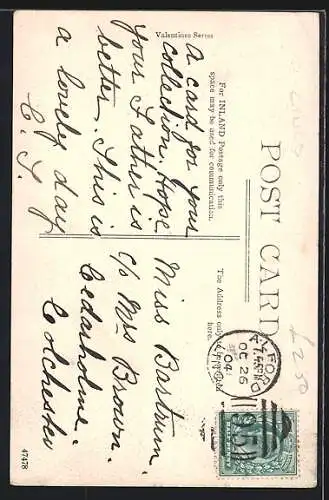 Valentines Series
POST CARD
For INLAND Postage only this
space may be used for communication.
The Address only to be written
here.
A card for your
collection. Hope
your Father is
better. This is
a lovely day
C. S.
Miss Bartrum.
c/o Mrs Brown.
Cedarholme.
Colchester
ALFORD
OC 26
04
£2.50
47478